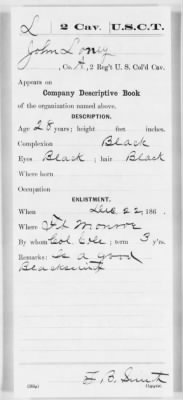 L | 2 Cav. | U.S.C.T.
John Loney
, Co. A, 2 Reg't U. S. Col'd Cav.
Appears on
Company Descriptive Book
of the organization named above.
DESCRIPTION.
Age 28 years; height feet inches.
Complexion Black
Eyes Black; hair Black
Where born
Occupation
ENLISTMENT.
When Dec 22, 186 .
Where Ft Monroe
By whom Col. Cole; term 3 y'rs.
Remarks: Is a good
Blacksmith
J. B. Smith
Copyist.